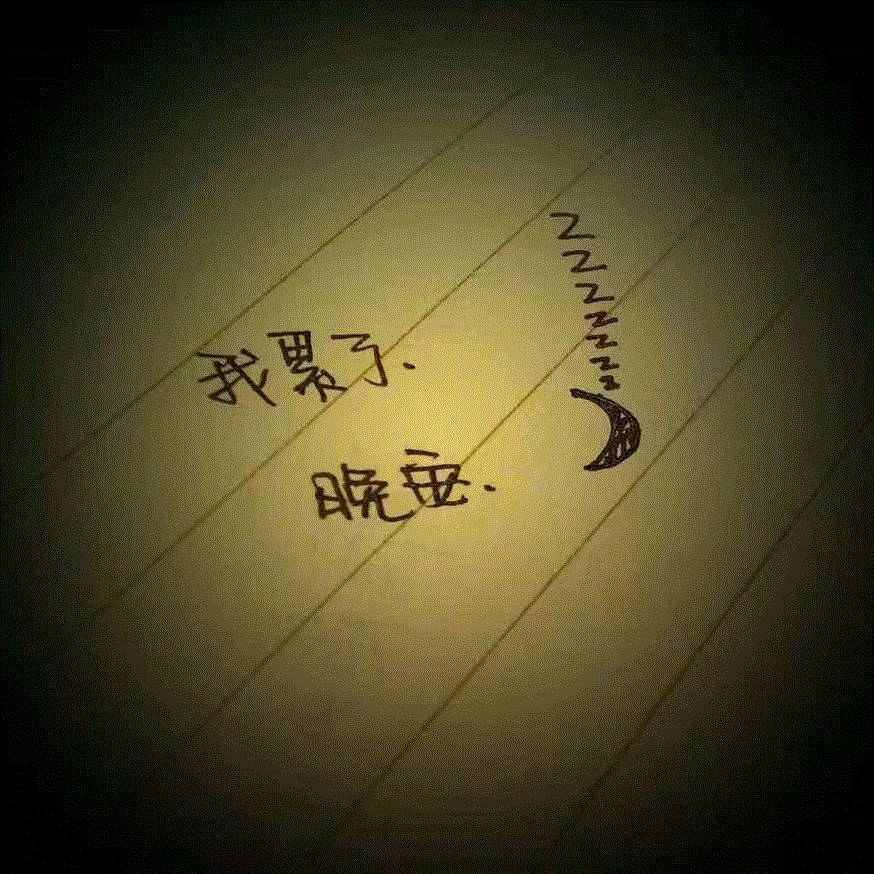 我累了.
晚安.
Z
Z
Z
Z
Z
Z
Z